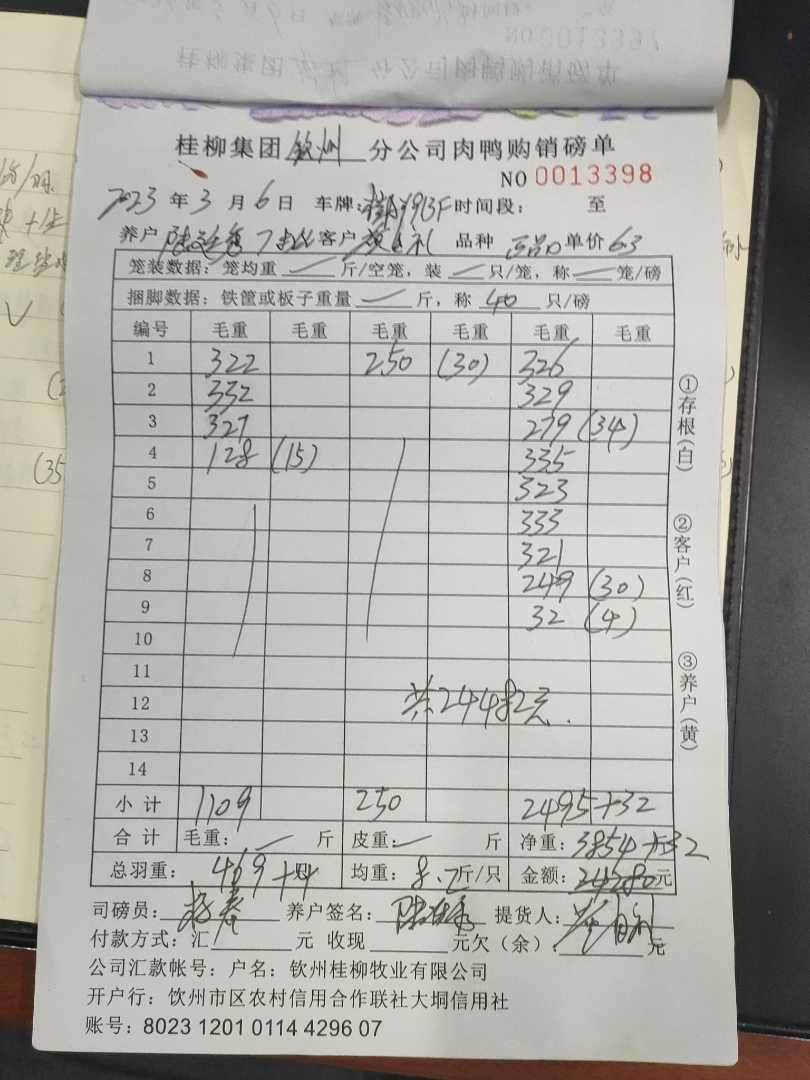 桂柳集团钦州分公司肉鸭购销磅单
NO 0013398
2023年3月6日 车牌: 913F 时间段: 至
养户 客户 品种 单价 6.3
笼装数据: 笼均重 斤/空笼, 装 只/笼, 称 笼/磅
捆脚数据: 铁筐或板子重量 斤, 称 40 只/磅
编号 毛重 毛重 毛重 毛重 毛重 毛重
1 322 250 (30) 326
2 332 329
3 327 279 (34)
4 128 (15) 335
5 323
6 333
7 321
8 249 (30)
9 32 (4)
10
11
12 共24482元.
13
14
小计 1109 250 2495+32
合计 毛重: 斤 皮重: 斤 净重: 3854+32
总羽重: 469+4 均重: 8.2斤/只 金额: 24280元
司磅员: 养户签名: 提货人:
付款方式: 汇 元 收现 元欠(余): 元
公司汇款帐号: 户名: 钦州桂柳牧业有限公司
开户行: 钦州市区农村信用合作联社大垌信用社
账号: 8023 1201 0114 4296 07
①存根(白)
②客户(红)
③养户(黄)